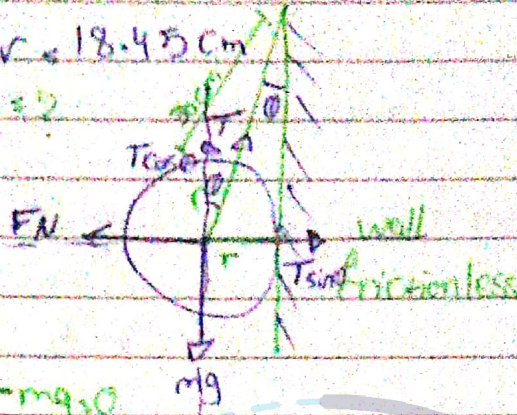 r = 18.45 cm
= ?
θ
T
Tcosθ
θ
FN
wall
r
Tsinθ
frictionless
mg
-mg=0